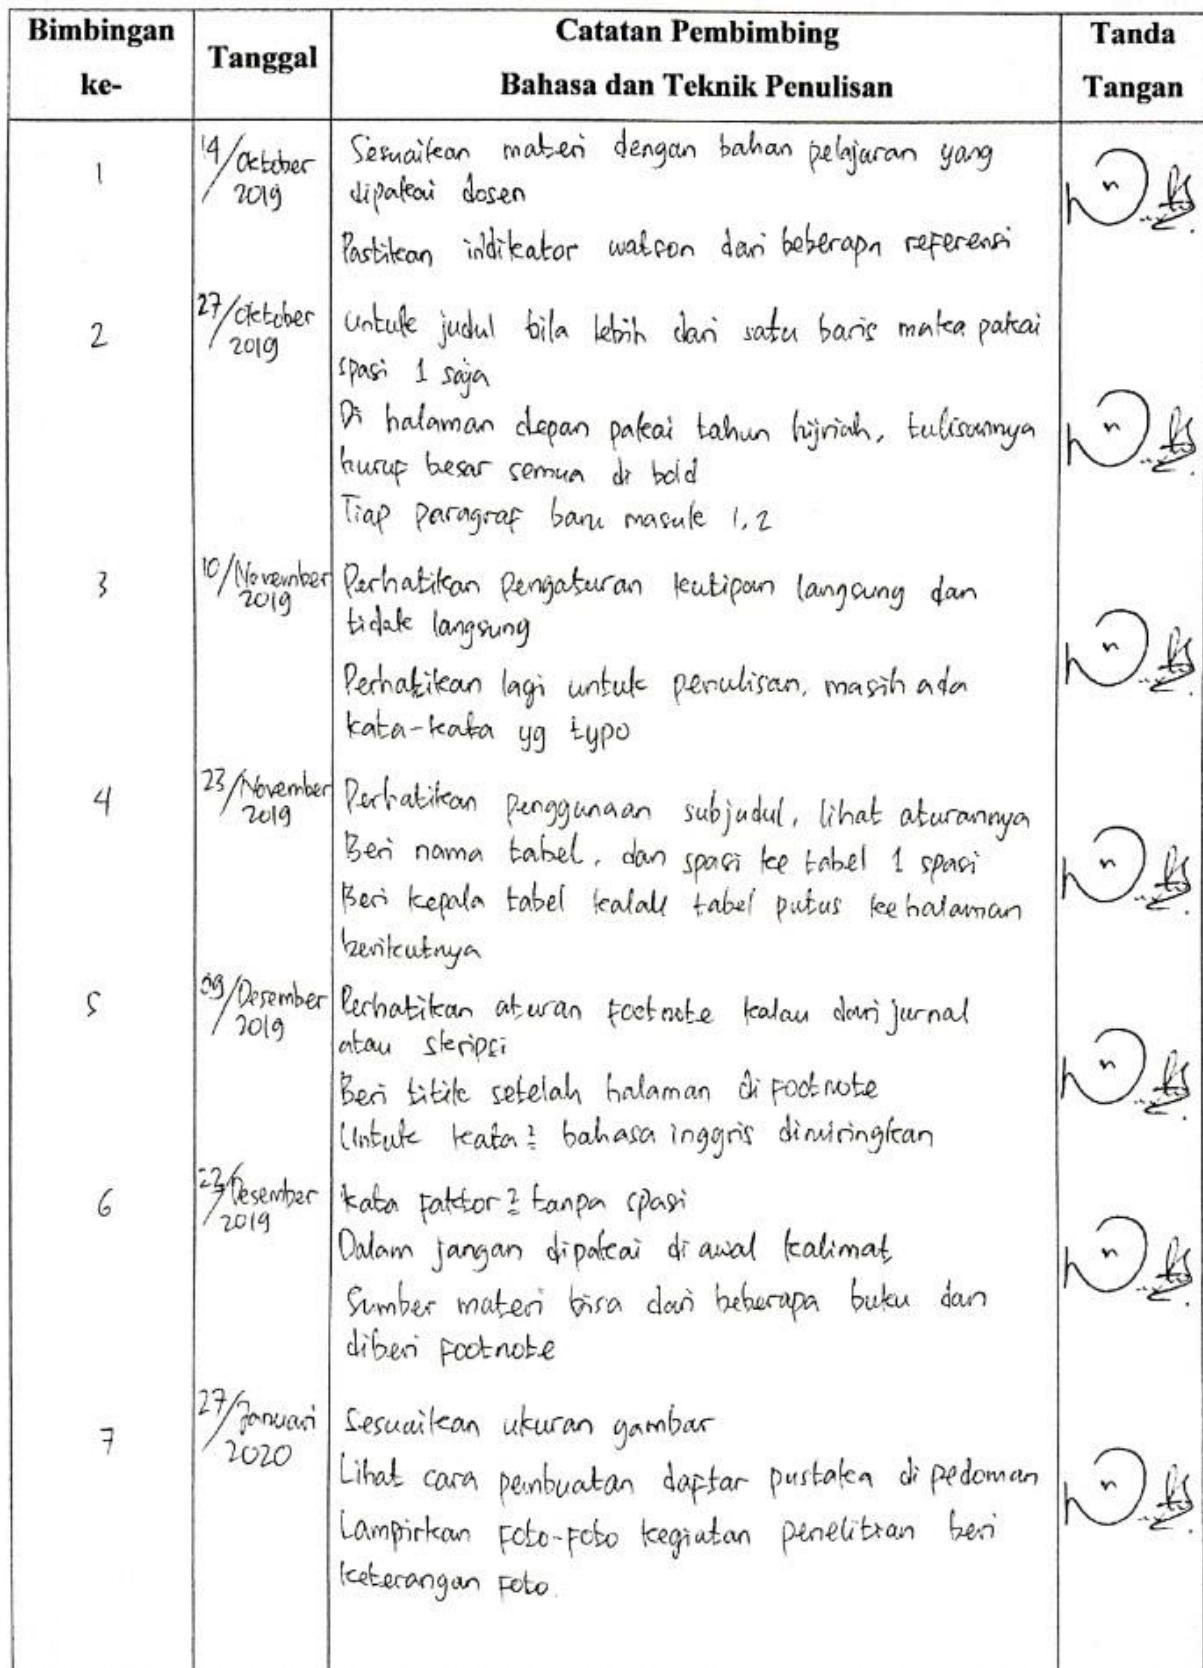 Bimbingan ke- Tanggal Catatan Pembimbing Bahasa dan Teknik Penulisan Tanda Tangan
1 14/Oktober 2019 Sesuaikan materi dengan bahan pelajaran yang
dipakai dosen
Pastikan indikator watson dari beberapa referensi
2 27/Oktober 2019 Untuk judul bila lebih dari satu baris maka pakai
spasi 1 saja
Di halaman depan pakai tahun hijriah, tulisannya
huruf besar semua di bold
Tiap paragraf baru masuk 1,2
3 10/November 2019 Perhatikan pengaturan kutipan langsung dan
tidak langsung
Perhatikan lagi untuk penulisan, masih ada
kata-kata yg typo
4 23/November 2019 Perhatikan penggunaan subjudul, lihat aturannya
Beri nama tabel, dan spasi ke tabel 1 spasi
Beri kepala tabel kalau tabel putus ke halaman
berikutnya
5 09/Desember 2019 Perhatikan aturan footnote kalau dari jurnal
atau skripsi
Beri titik setelah halaman di footnote
Untuk kata2 bahasa inggris dimiringkan
6 23/Desember 2019 Kata faktor2 tanpa spasi
Dalam jangan dipakai di awal kalimat
Sumber materi bisa dari beberapa buku dan
diberi footnote
7 27/Januari 2020 Sesuaikan ukuran gambar
Lihat cara pembuatan daftar pustaka di pedoman
Lampirkan foto-foto kegiatan penelitian beri
keterangan foto.